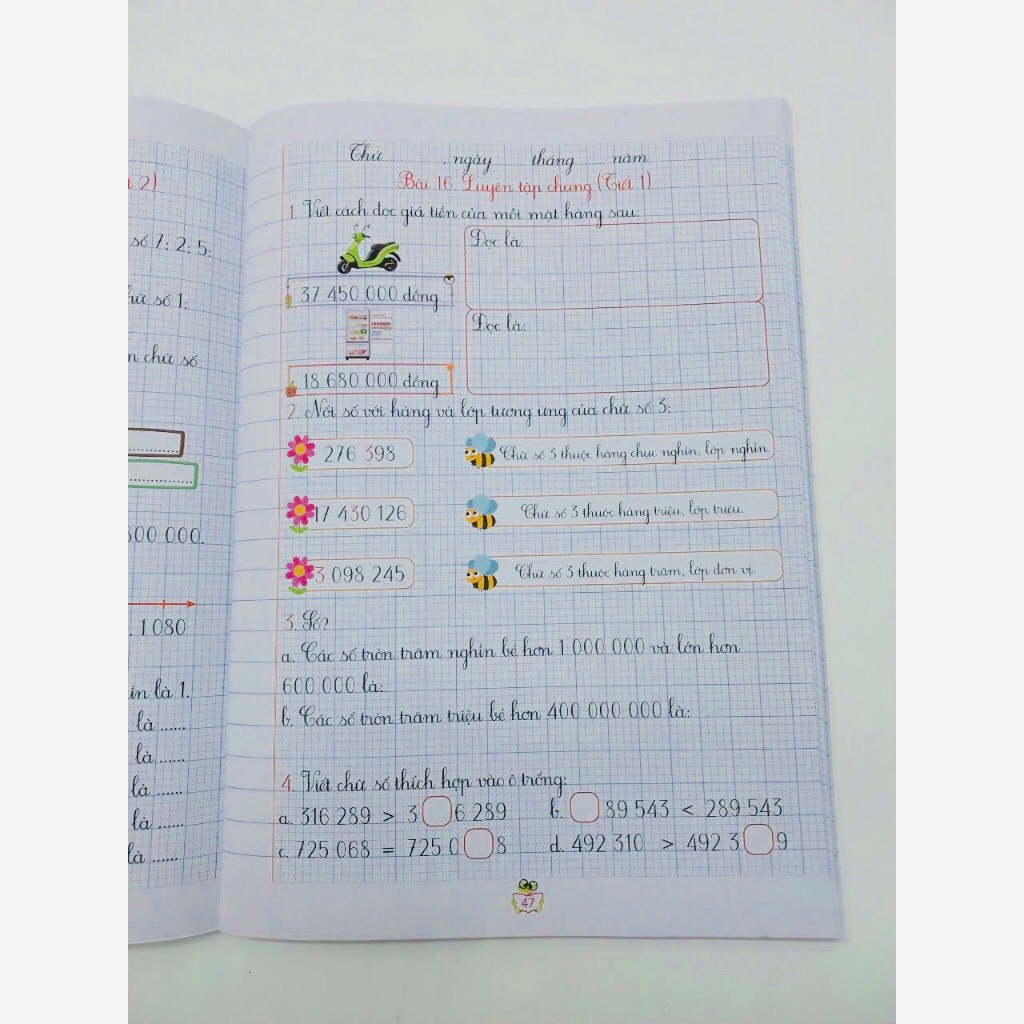 2)
số 7; 2; 5:
số 1:
chữ số
300 000.
1 080
là 1.
là ......
là ......
là ......
là ......
là ......
Thứ ngày tháng năm
Bài 16. Luyện tập chung (Tiết 1)
1. Viết cách đọc giá tiền của mỗi mặt hàng sau:
Đọc là:
37 450 000 đồng
Đọc là:
18 680 000 đồng
2. Nối số với hàng và lớp tương ứng của chữ số 3:
276 398 Chữ số 3 thuộc hàng chục nghìn, lớp nghìn.
17 430 126 Chữ số 3 thuộc hàng triệu, lớp triệu.
3 098 245 Chữ số 3 thuộc hàng trăm, lớp đơn vị.
3. Số?
a. Các số tròn trăm nghìn bé hơn 1 000 000 và lớn hơn
600 000 là:
b. Các số tròn trăm triệu bé hơn 400 000 000 là:
4. Viết chữ số thích hợp vào ô trống:
a. 316 289 > 3 6 289 b. 89 543 < 289 543
c. 725 068 = 725 0 8 d. 492 310 > 492 3 9
47